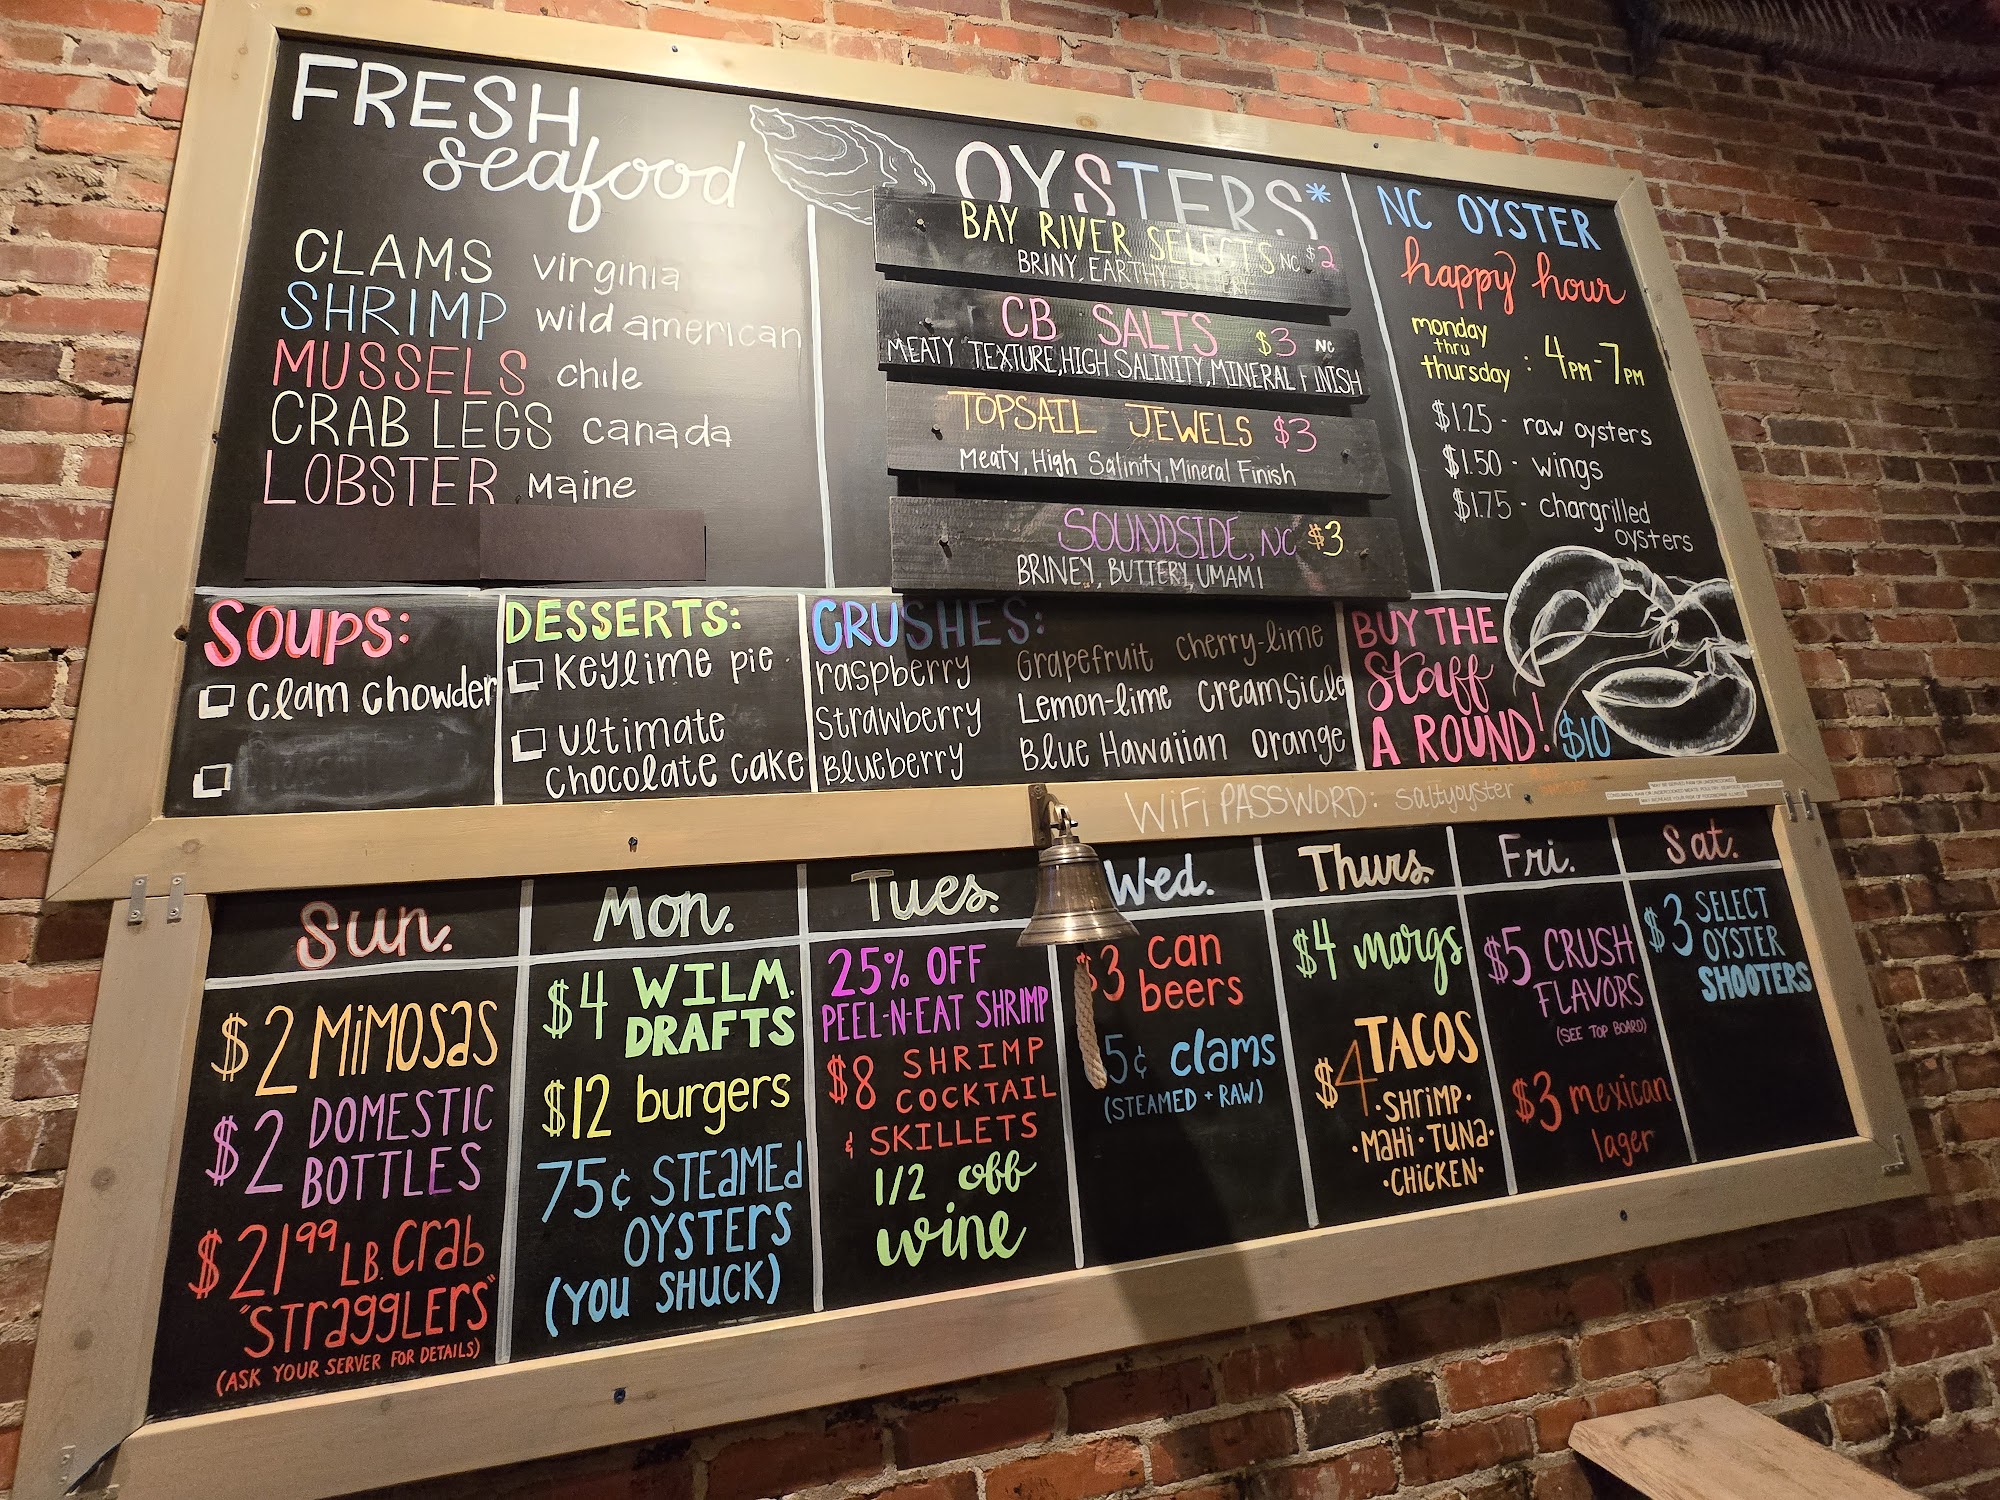 FRESH
seafood
CLAMS virginia
SHRIMP wild american
MUSSELS chile
CRAB LEGS canada
LOBSTER Maine
OYSTERS*
BAY RIVER SELECTS NC $2
BRINY, EARTHY, BUTTERY
CB SALTS $3 NC
MEATY TEXTURE, HIGH SALINITY, MINERAL FINISH
TOPSAIL JEWELS $3
Meaty, High Salinity, Mineral Finish
SOUNDSIDE, NC $3
BRINEY, BUTTERY, UMAMI
NC OYSTER
happy hour
monday
thru
thursday : 4PM-7PM
$1.25 - raw oysters
$1.50 - wings
$1.75 - chargrilled
oysters
SOUPS:
Clam Chowder
DESSERTS:
Keylime Pie
Ultimate
Chocolate Cake
CRUSHES:
raspberry Grapefruit Cherry-lime
Strawberry Lemon-lime Creamsicle
Blueberry Blue Hawaiian Orange
BUY THE
Staff
A ROUND! $10
WiFi PASSWORD: saltyoyster
Sun.
$2 MIMOSAS
$2 DOMESTIC
BOTTLES
$21.99 LB. Crab
"STragglers"
(ASK YOUR SERVER FOR DETAILS)
Mon.
$4 WILM.
DRAFTS
$12 burgers
75¢ STEAMED
OYSTERS
(YOU SHUCK)
Tues.
25% OFF
PEEL-N-EAT SHRIMP
$8 SHRIMP
COCKTAIL
& SKILLETS
1/2 off
wine
Wed.
$3 can
beers
5¢ clams
(STEAMED + RAW)
Thurs.
$4 margs
$4 TACOS
·SHRIMP·
·MAHI·TUNA·
·CHICKEN·
Fri.
$5 CRUSH
FLAVORS
(SEE TOP BOARD)
$3 mexican
lager
Sat.
$3 SELECT
OYSTER
SHOOTERS